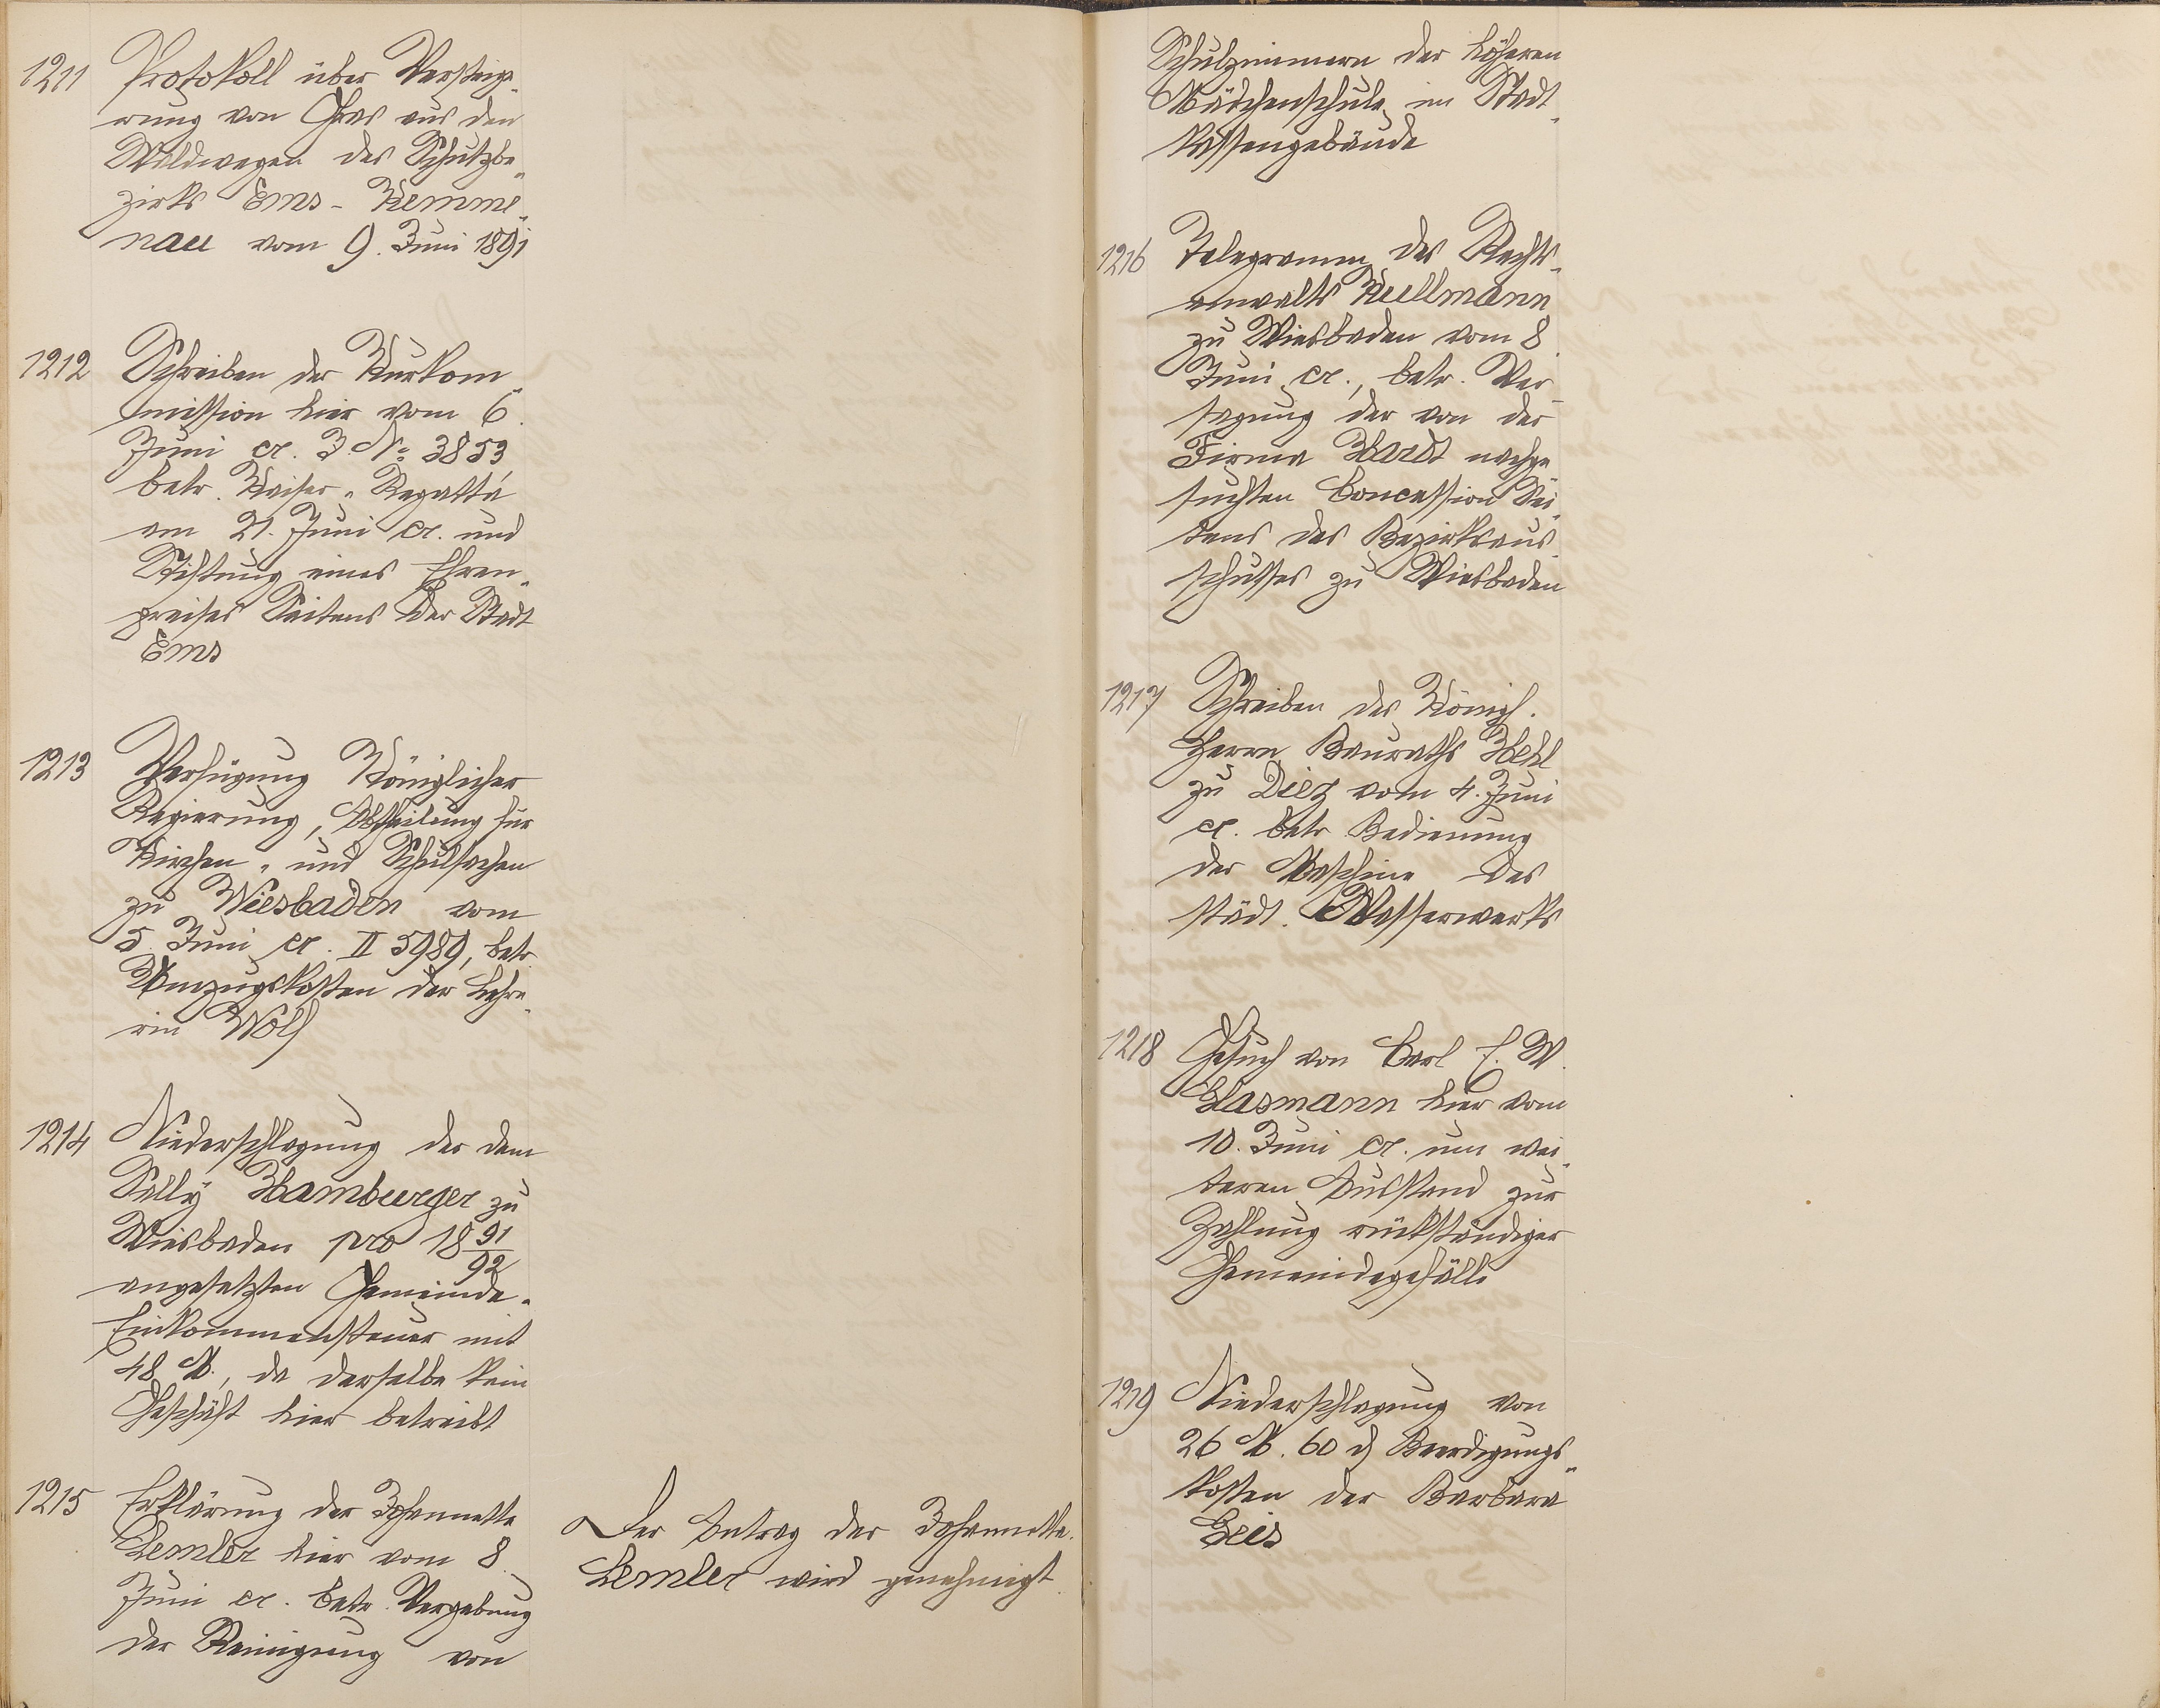 1211 Protokoll über Versteige-
rung von Gras aus den
Waldwegen des Schutzbe-
zirks Ems-Kemme-
nau vom 9. Juni 1891
1212 Schreiben der Kurkom-
mission hier vom 6.
Juni cr. J. No 3853
betr. Kaiser-Regatta
am 21. Juni cr. und
Stiftung eines Ehren-
preises Seitens der Stadt
Ems
1213 Verfügung Königlicher
Regierung, Abtheilung für
Kirchen- und Schulsachen
zu Wiesbaden vom
5. Juni cr. II 5989, betr.
Umzugskosten der Lehre-
rin Wolf
1214 Niederschlagung der dem
Sally Hamburger zu
Wiesbaden pro 1891/92
angesetzten Gemeinde-
Einkommensteuer mit
48 M., da derselbe kein
Geschäft hier betreibt
1215 Erklärung der Johannette
Lemler hier vom 8.
Juni cr. betr. Vergebung
der Reinigung von
Der Antrag der Johannette
Lemler wird genehmigt.
Schulzimmern der höheren
Mädchenschule im Stadt-
kassengebäude
1216 Telegramm des Rechts-
anwalts Kullmann
zu Wiesbaden vom 8.
Juni cr., betr. Ver-
sagung der von der
Firma Hardt nachge-
suchten Concession Sei-
tens des Bezirksaus-
schusses zu Wiesbaden
1217 Schreiben des Königl.
Herrn Bauraths Hehl
zu Diez vom 4. Juni
cr. betr. Bedienung
der Maschine des
städt. Wasserwerks
1218 Gesuch von Carl E. W.
Hasmann hier vom
10. Juni cr. um wei-
teren Ausstand zur
Zahlung rückständiger
Gemeindegefälle
1219 Niederschlagung von
26 M. 60 ₰ Beerdigungs-
kosten der Barbara
Geis